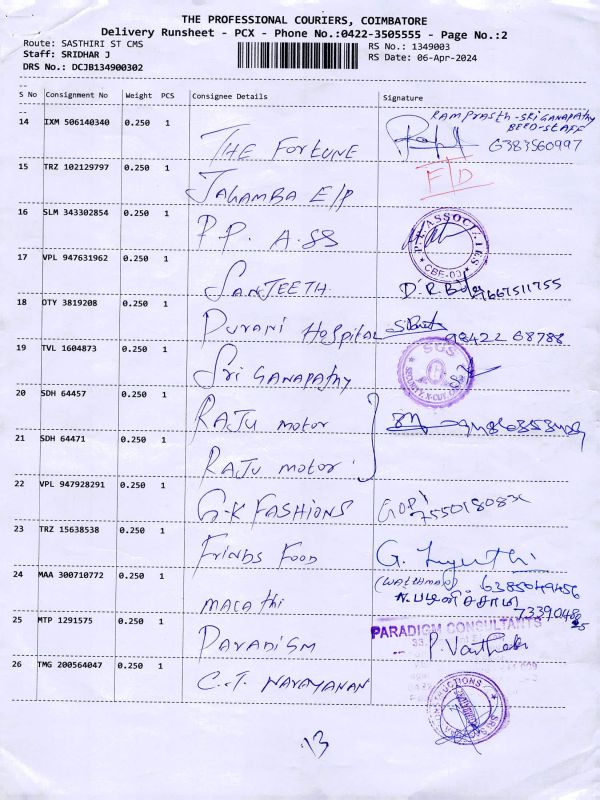 THE PROFESSIONAL COURIERS, COIMBATORE
Delivery Runsheet - PCX - Phone No.:0422-3505555 - Page No.:2
Route: SASTHIRI ST CMS
Staff: SRIDHAR J
DRS No.: DCJB134900302
RS No.: 1349003
RS Date: 06-Apr-2024
S No Consignment No Weight PCS Consignee Details Signature
14 IXM 506140340 0.250 1 THE FORTUNE
RAMPRASTH-SRI GANAPATHY
6383560997
15 TRZ 102129797 0.250 1 JAGAMBA E/P F/D
16 SLM 343302854 0.250 1 P.P. ASS
P.P. ASSOCIATES
CBE-001
17 VPL 947631962 0.250 1 SANJEETH D.R.
9667511755
18 OTY 3819208 0.250 1 DURANI Hospital
98422 68788
19 TVL 1604873 0.250 1 Sri GANAPATHY
SGS
20 SDH 64457 0.250 1 RAJU motor
21 SDH 64471 0.250 1 RAJU motor
22 VPL 947928291 0.250 1 G-K FASHIONS GOPI
23 TRZ 15638538 0.250 1 Frinds Food G.
24 MAA 300710772 0.250 1 marathi
(WATCHMAN) 6385049456
N. பழனிச்சாமி
25 MTP 1291575 0.250 1 PARADISM
PARADIGM CONSULTANTS
26 TMG 200564047 0.250 1 C.T. NARAYANAN
13